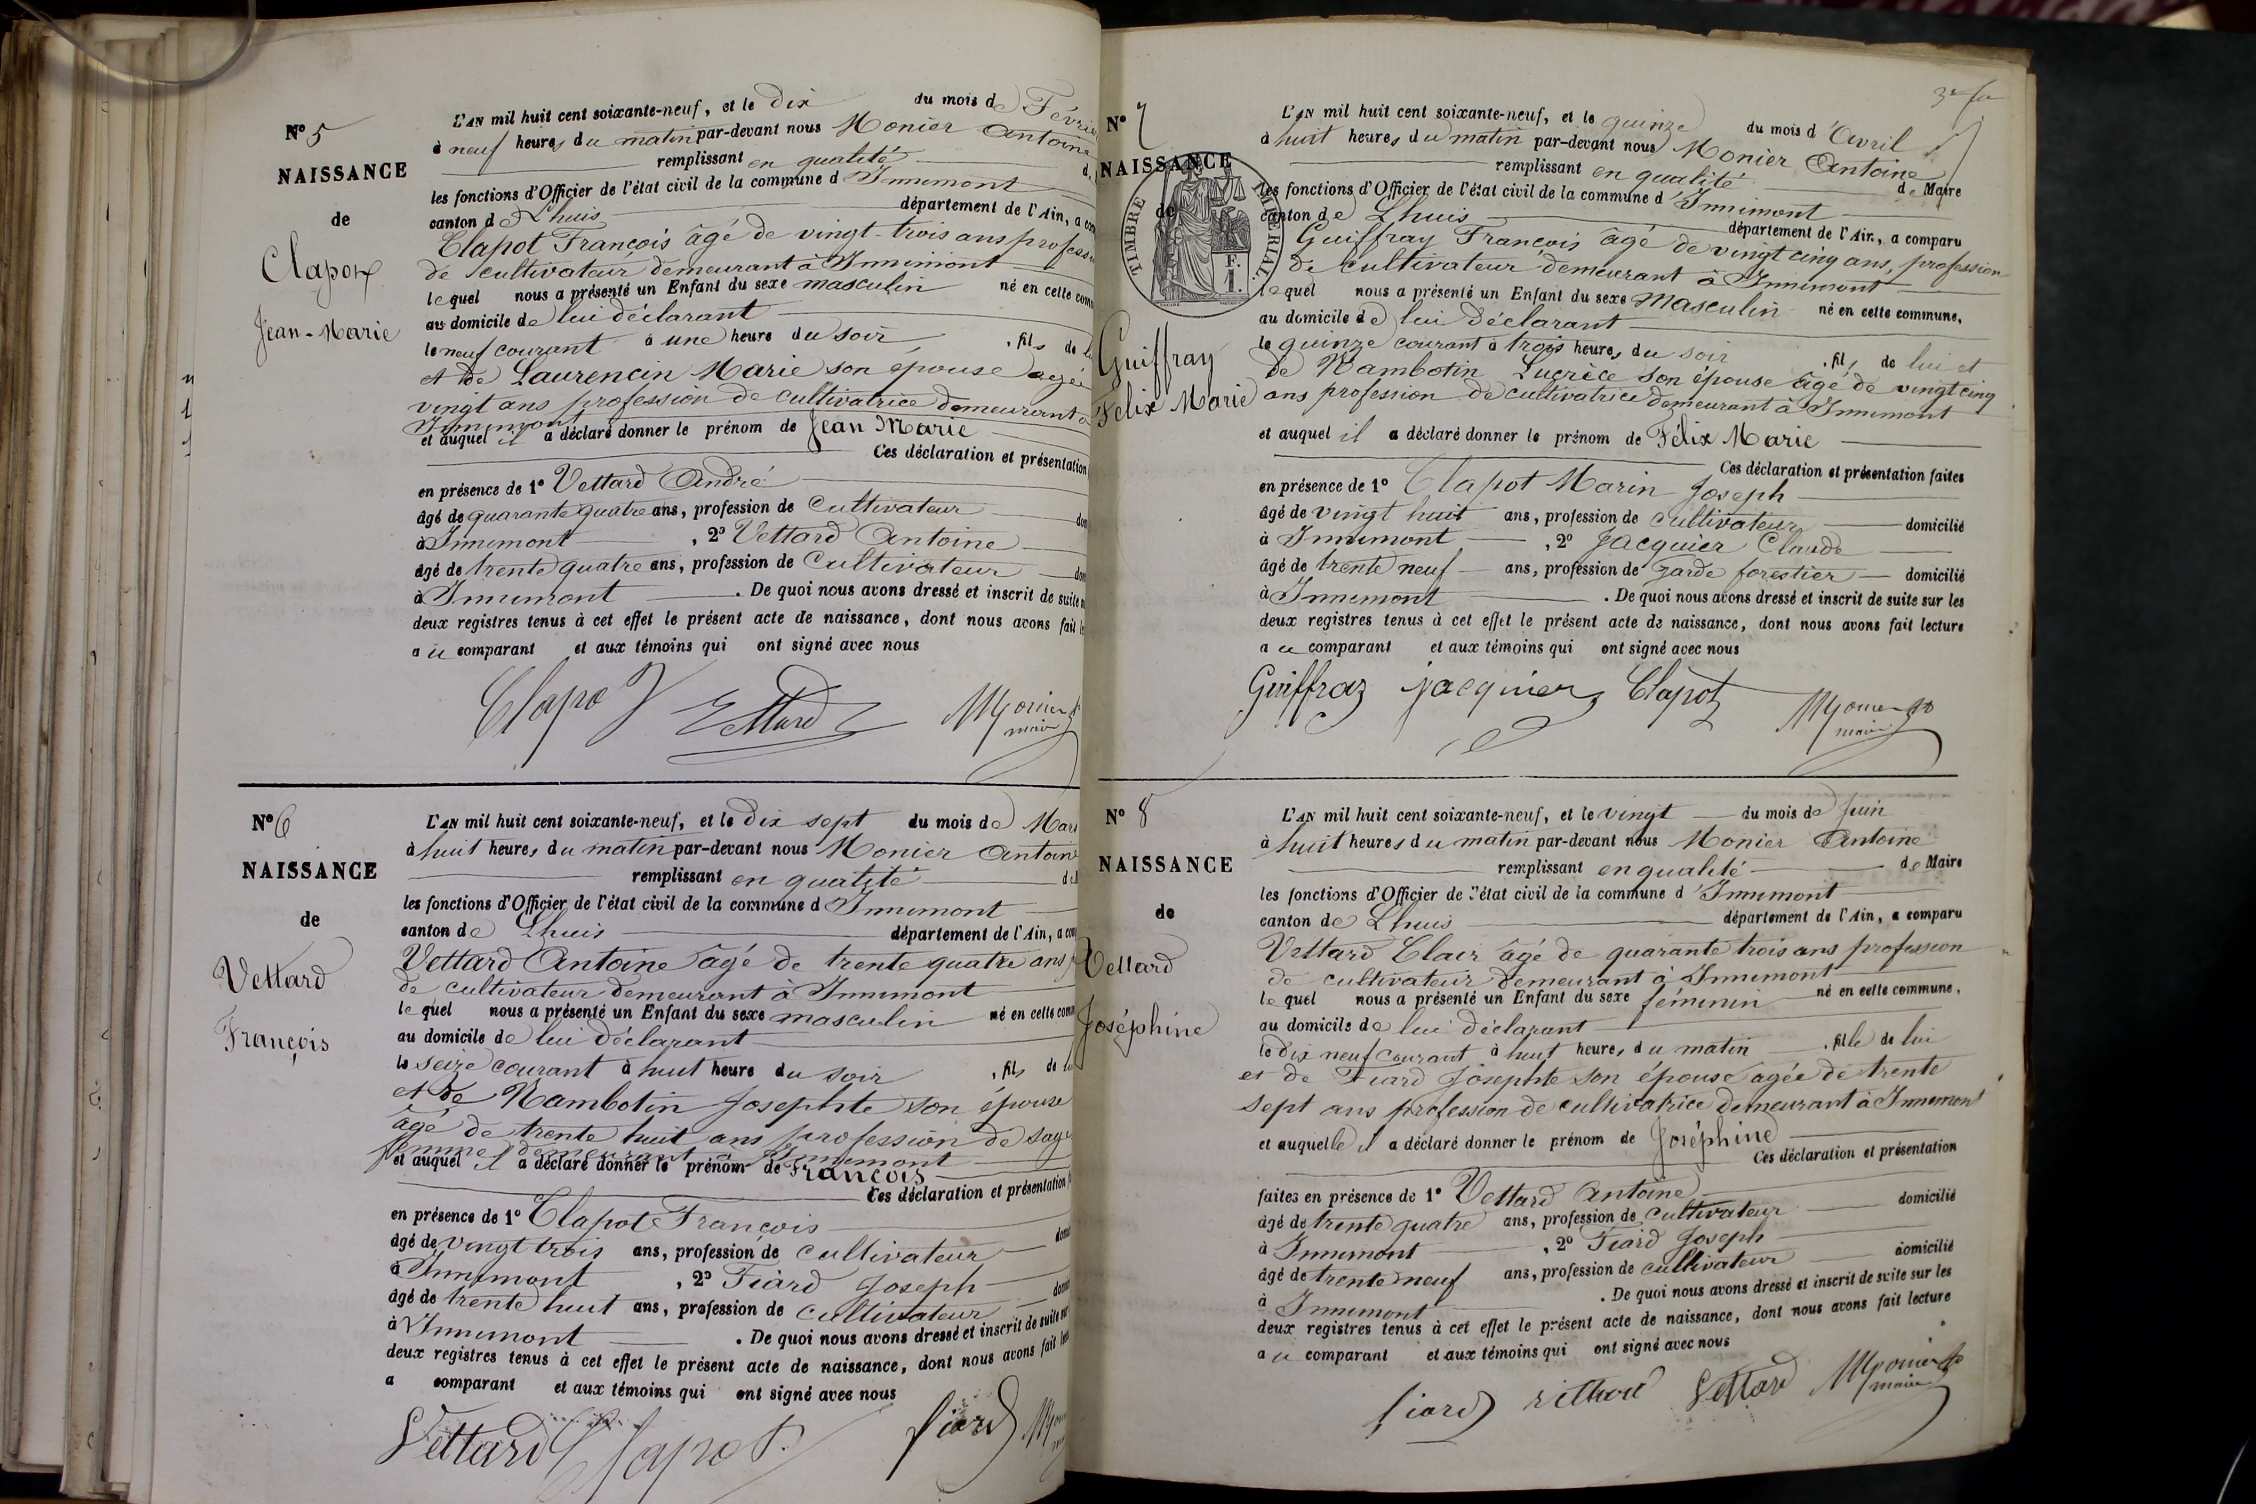 N° 5
NAISSANCE
de
Clapot
Jean-Marie
L'AN mil huit cent soixante-neuf, et le dix du mois de Févri
à neuf heures du matin par-devant nous Monier Antoine
remplissant en qualité d
les fonctions d'Officier de l'état civil de la commune d'Innimont
canton de Lhuis département de l'Ain, a com
Clapot François âgé de vingt-trois ans profess
de cultivateur demeurant à Innimont
lequel nous a présenté un Enfant du sexe masculin né en cette com
au domicile de lui déclarant
le neuf courant à une heure du soir, fils de lu
et de Laurencin Marie son épouse agée
vingt ans profession de cultivatrice demeurant à
Innimont
et auquel il a déclaré donner le prénom de Jean Marie
Ces déclaration et présentation
en présence de 1° Vettard André
âgé de quarante quatre ans, profession de cultivateur dom
à Innimont, 2° Vettard Antoine
âgé de trente quatre ans, profession de cultivateur dom
à Innimont. De quoi nous avons dressé et inscrit de suite
deux registres tenus à cet effet le présent acte de naissance, dont nous avons fait le
au comparant et aux témoins qui ont signé avec nous
Clapot Vettard Monier
maire
N° 6
NAISSANCE
de
Vettard
François
L'AN mil huit cent soixante-neuf, et le dix sept du mois de Mars
à huit heures du matin par-devant nous Monier Antoine
remplissant en qualité de
les fonctions d'Officier de l'état civil de la commune d'Innimont
canton de Lhuis département de l'Ain, a com
Vettard Antoine âgé de trente quatre ans p
de cultivateur demeurant à Innimont
lequel nous a présenté un Enfant du sexe masculin né en cette com
au domicile de lui déclarant
le seize courant à huit heure du soir, fils de lu
et de Nambotin Josephte son épouse
âgé de trente huit ans profession de sage
femme demeurant à Innimont
et auquel il a déclaré donner le prénom de François
Ces déclaration et présentation
en présence de 1° Clapot François
âgé de vingt trois ans, profession de cultivateur dom
à Innimont, 2° Fiard Joseph
âgé de trente huit ans, profession de cultivateur dom
à Innimont. De quoi nous avons dressé et inscrit de suite sur
deux registres tenus à cet effet le présent acte de naissance, dont nous avons fait lec
a comparant et aux témoins qui ont signé avec nous
Vettard Clapot fiard
N° 7
NAISSANCE
de
TIMBRE IMPÉRIAL
Guiffray
Felix Marie
L'AN mil huit cent soixante-neuf, et le quinze du mois d'Avril
à huit heures du matin par-devant nous Monier Antoine
remplissant en qualité de Maire
les fonctions d'Officier de l'état civil de la commune d'Innimont
canton de Lhuis département de l'Ain, a comparu
Guiffray François âgé de vingt cinq ans, profession
de cultivateur demeurant à Innimont
lequel nous a présenté un Enfant du sexe Masculin né en cette commune,
au domicile de lui déclarant
le quinze courant à trois heures du soir, fils de lui et
de Nambotin Lucrèce son épouse âgé de vingt cinq
ans profession de cultivatrice demeurant à Innimont
et auquel il a déclaré donner le prénom de Félix Marie
Ces déclaration et présentation faites
en présence de 1° Clapot Marin Joseph
âgé de vingt huit ans, profession de cultivateur domicilié
à Innimont, 2° Jacquier Claude
âgé de trente neuf ans, profession de garde forestier domicilié
à Innimont. De quoi nous avons dressé et inscrit de suite sur les
deux registres tenus à cet effet le présent acte de naissance, dont nous avons fait lecture
au comparant et aux témoins qui ont signé avec nous
Guiffraz jacquier Clapot Monier
maire
N° 8
NAISSANCE
de
Vettard
Joséphine
L'AN mil huit cent soixante-neuf, et le vingt du mois de Juin
à huit heures du matin par-devant nous Monier Antoine
remplissant en qualité de Maire
les fonctions d'Officier de l'état civil de la commune d'Innimont
canton de Lhuis département de l'Ain, a comparu
Vettard Clair âgé de quarante trois ans profession
de cultivateur demeurant à Innimont
lequel nous a présenté un Enfant du sexe féminin né en cette commune,
au domicile de lui déclarant
le dix neuf courant à huit heures du matin, fille de lui
et de Fiard Josephte son épouse agée de trente
sept ans profession de cultivatrice demeurant à Innimont
et auquelle il a déclaré donner le prénom de Joséphine
Ces déclaration et présentation
faites en présence de 1° Vettard Antoine
âgé de trente quatre ans, profession de cultivateur domicilié
à Innimont, 2° Fiard Joseph
âgé de trente neuf ans, profession de cultivateur domicilié
à Innimont. De quoi nous avons dressé et inscrit de suite sur les
deux registres tenus à cet effet le présent acte de naissance, dont nous avons fait lecture
au comparant et aux témoins qui ont signé avec nous
fiard Vettard Monier
maire